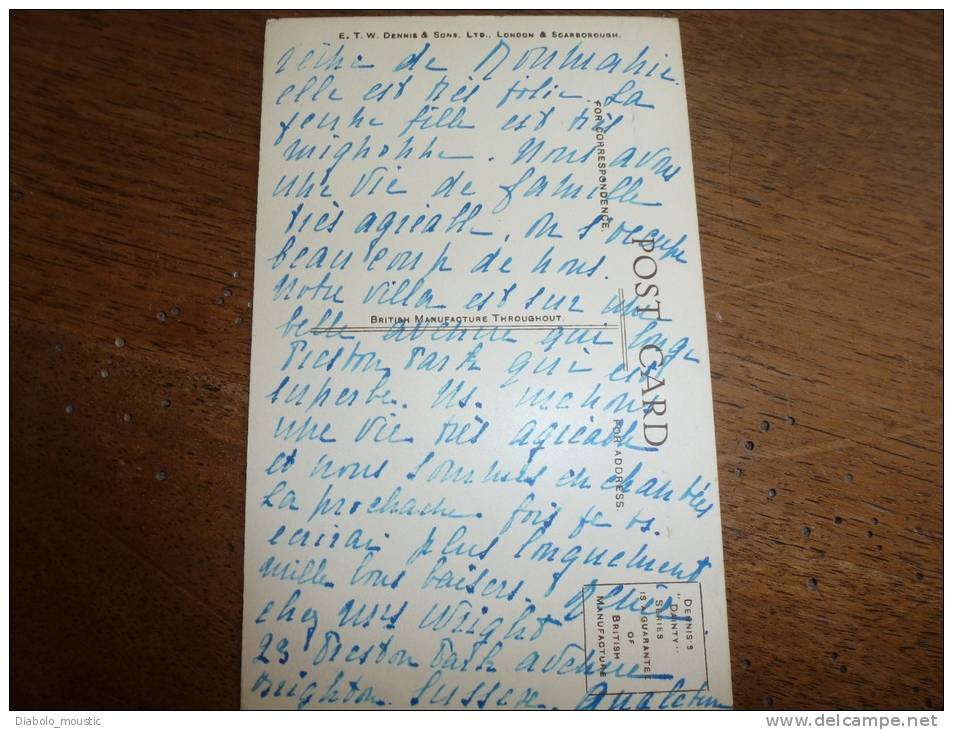 E. T. W. DENNIS & SONS, LTD., LONDON & SCARBOROUGH.
reine de Roumanie.
elle est très jolie. La
jeune fille est très
mignonne. Nous avons
une vie de famille
très agréable, on s'occupe
beaucoup de nous.
Notre villa est sur une
belle avenue qui longe
Preston Park qui est
superbe. Ns. menons
une vie très agréable
et nous sommes enchantées
La prochaine fois je vs.
écrirai plus longuement
mille bons baisers.
chez Mrs Wright
23 Preston Park avenue
Brighton. Sussex. Angleterre
FOR CORRESPONDENCE.
POST CARD
BRITISH MANUFACTURE THROUGHOUT.
FOR ADDRESS.
DENNIS'S
"DAINTY"
SERIES
IS A GUARANTEE
OF
BRITISH
MANUFACTURE
Diabolo_moustic
www.delcampe.net